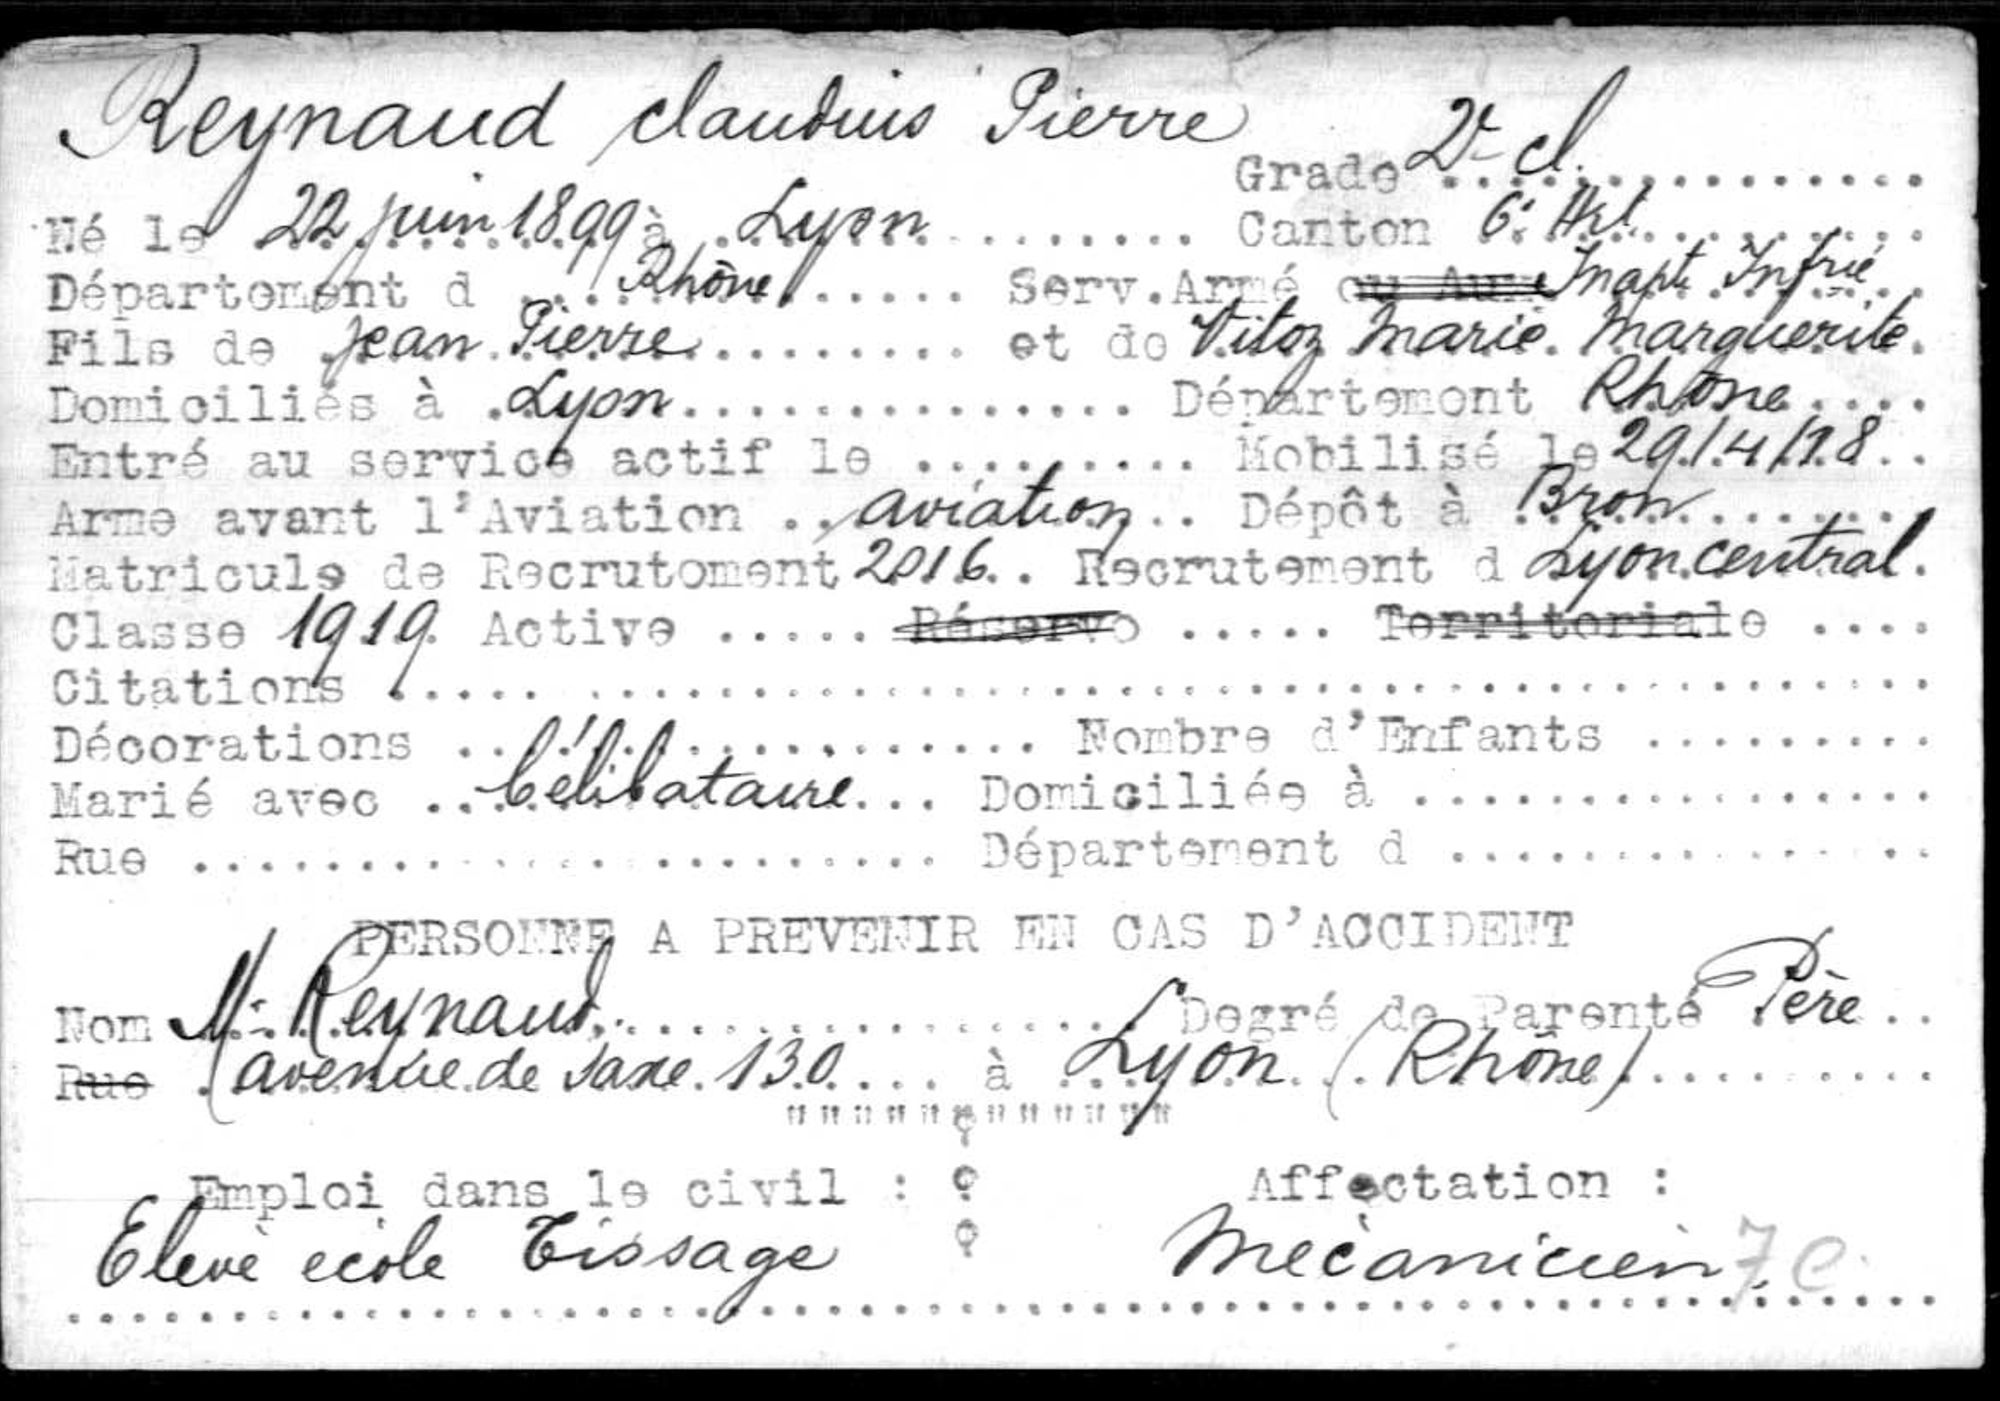 Reynaud Claudius Pierre
Grade 2e cl.
Né le 22 juin 1899 à Lyon Canton 6e Art
Département d Rhône Serv.Armé ou Aux Inapt. Infrie
Fils de Jean Pierre et de Vitoz Marie Marguerite.
Domiciliés à Lyon Département Rhône
Entré au service actif le Mobilisé le 29/4/18
Arme avant l'Aviation aviation Dépôt à Bron
Matricule de Recrutement 2016 Recrutement d Lyon central.
Classe 1919 Active Réserve Territoriale
Citations
Décorations Nombre d'Enfants
Marié avec Célibataire Domiciliés à
Rue Département d
PERSONNE A PREVENIR EN CAS D'ACCIDENT
Nom Mr Reynaud Degré de Parenté Père
Rue (avenue de Saxe 130 à Lyon (Rhône)
Emploi dans le civil : Affectation :
Elevè ecole Tissage Mecànicien 7e